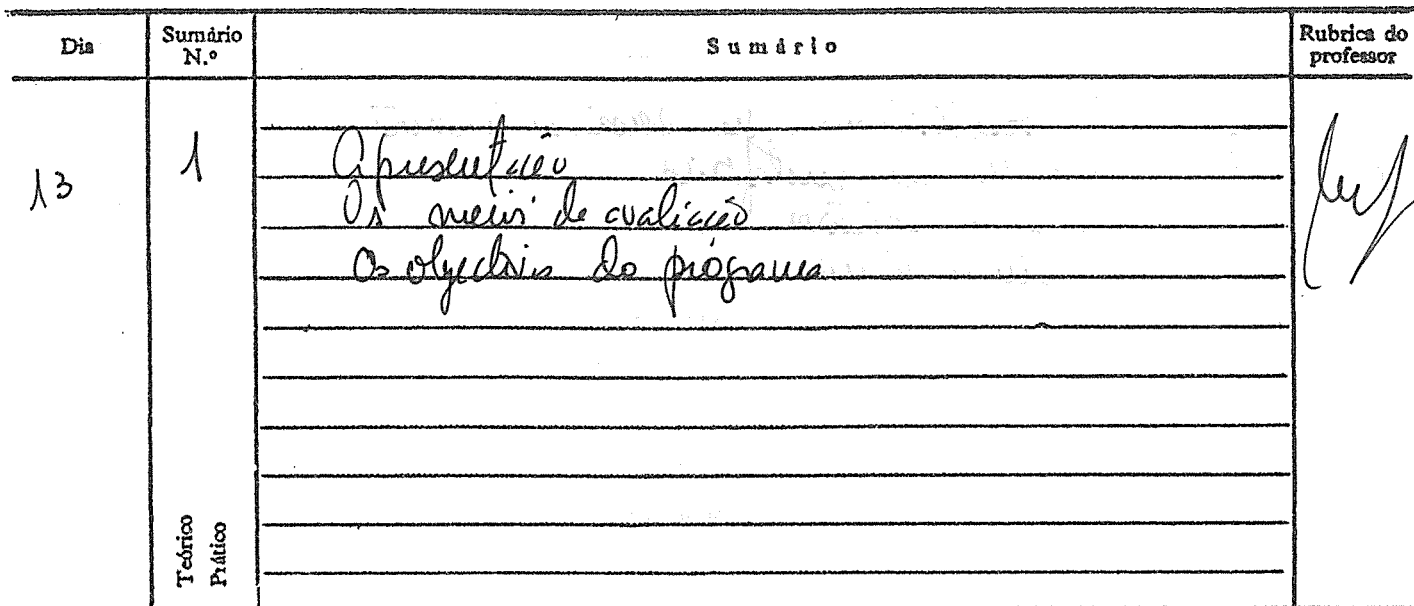 Dia
Sumário N.º
Sumário
Rubrica do professor
13
1
Apresentação
Os meios de avaliação
Os objectivos do programa
Teórico
Prático